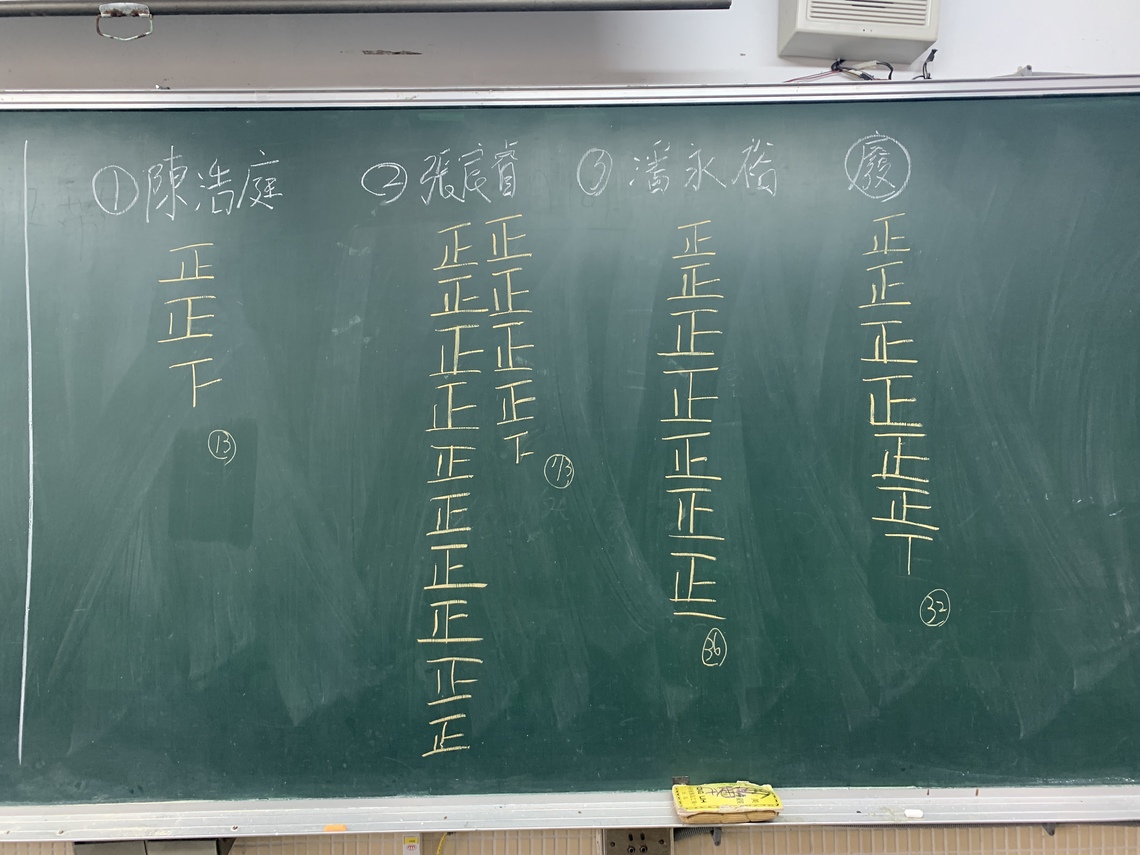 ①陳浩庭
正
正
下
⑬
②張宸睿
正正
正正
正正
正正
正下
正
正
正
正
正
73
③潘永裕
正
正
正
正
正
正
正
一
㊱
廢
正
正
正
正
正
正
丅
㉜